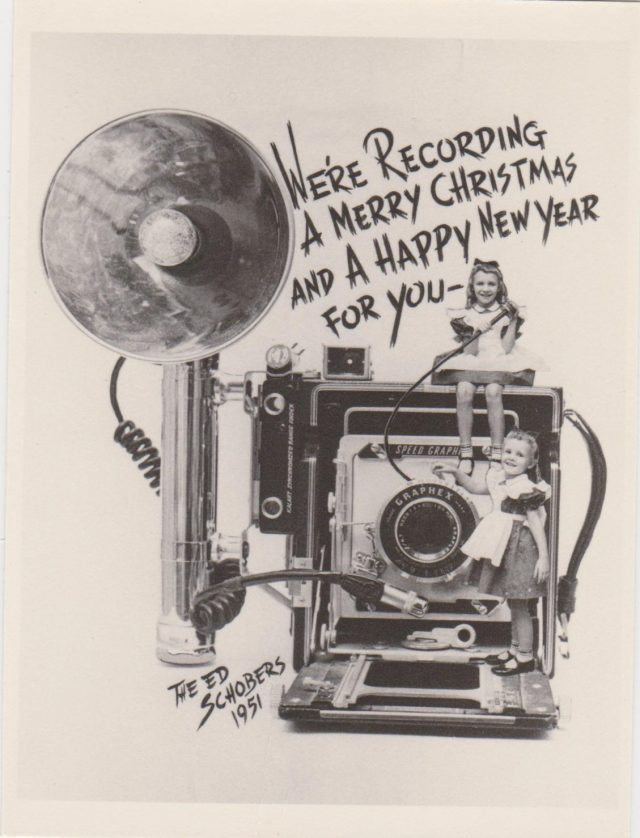 WE'RE RECORDING
A MERRY CHRISTMAS
AND A HAPPY NEW YEAR
FOR YOU-
SPEED GRAPH
GRAPHEX
KALART SYNCHRONIZED RANGE FINDER
THE ED
SCHOBERS
1951